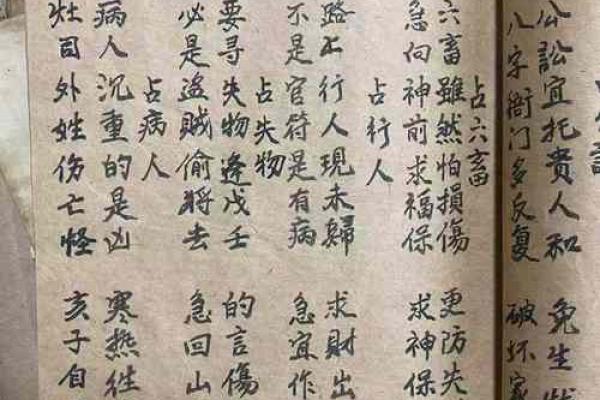 公訟宜托贵人和 免生
八字衙门多反复 破坏家
占六畜
六畜雖然怕損傷 更防失
急向神前求福保 求神保
占行人
路上行人現未婦 求財出
不是官符是有病 急宜作
占失物
要寻失物逢戊壬 的言傷
必是盗賊偷將去 急回山
占病人
病人沉重的是凶 寒热往
灶司外姓伤亡怪 亥子自